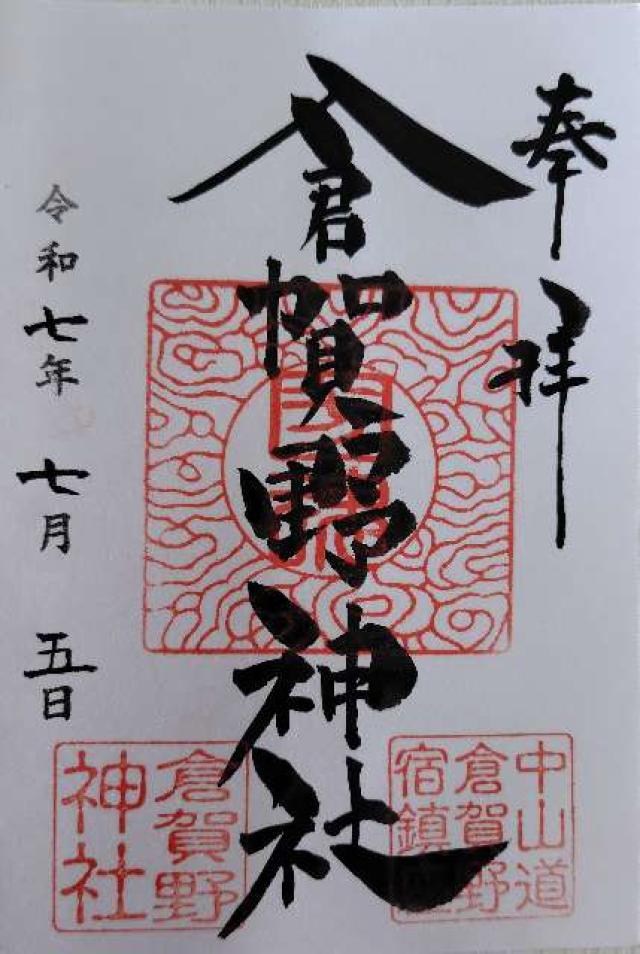 奉拝
倉賀野神社
令和七年 七月 五日
中山道
倉賀野
宿鎮
倉賀野
神社